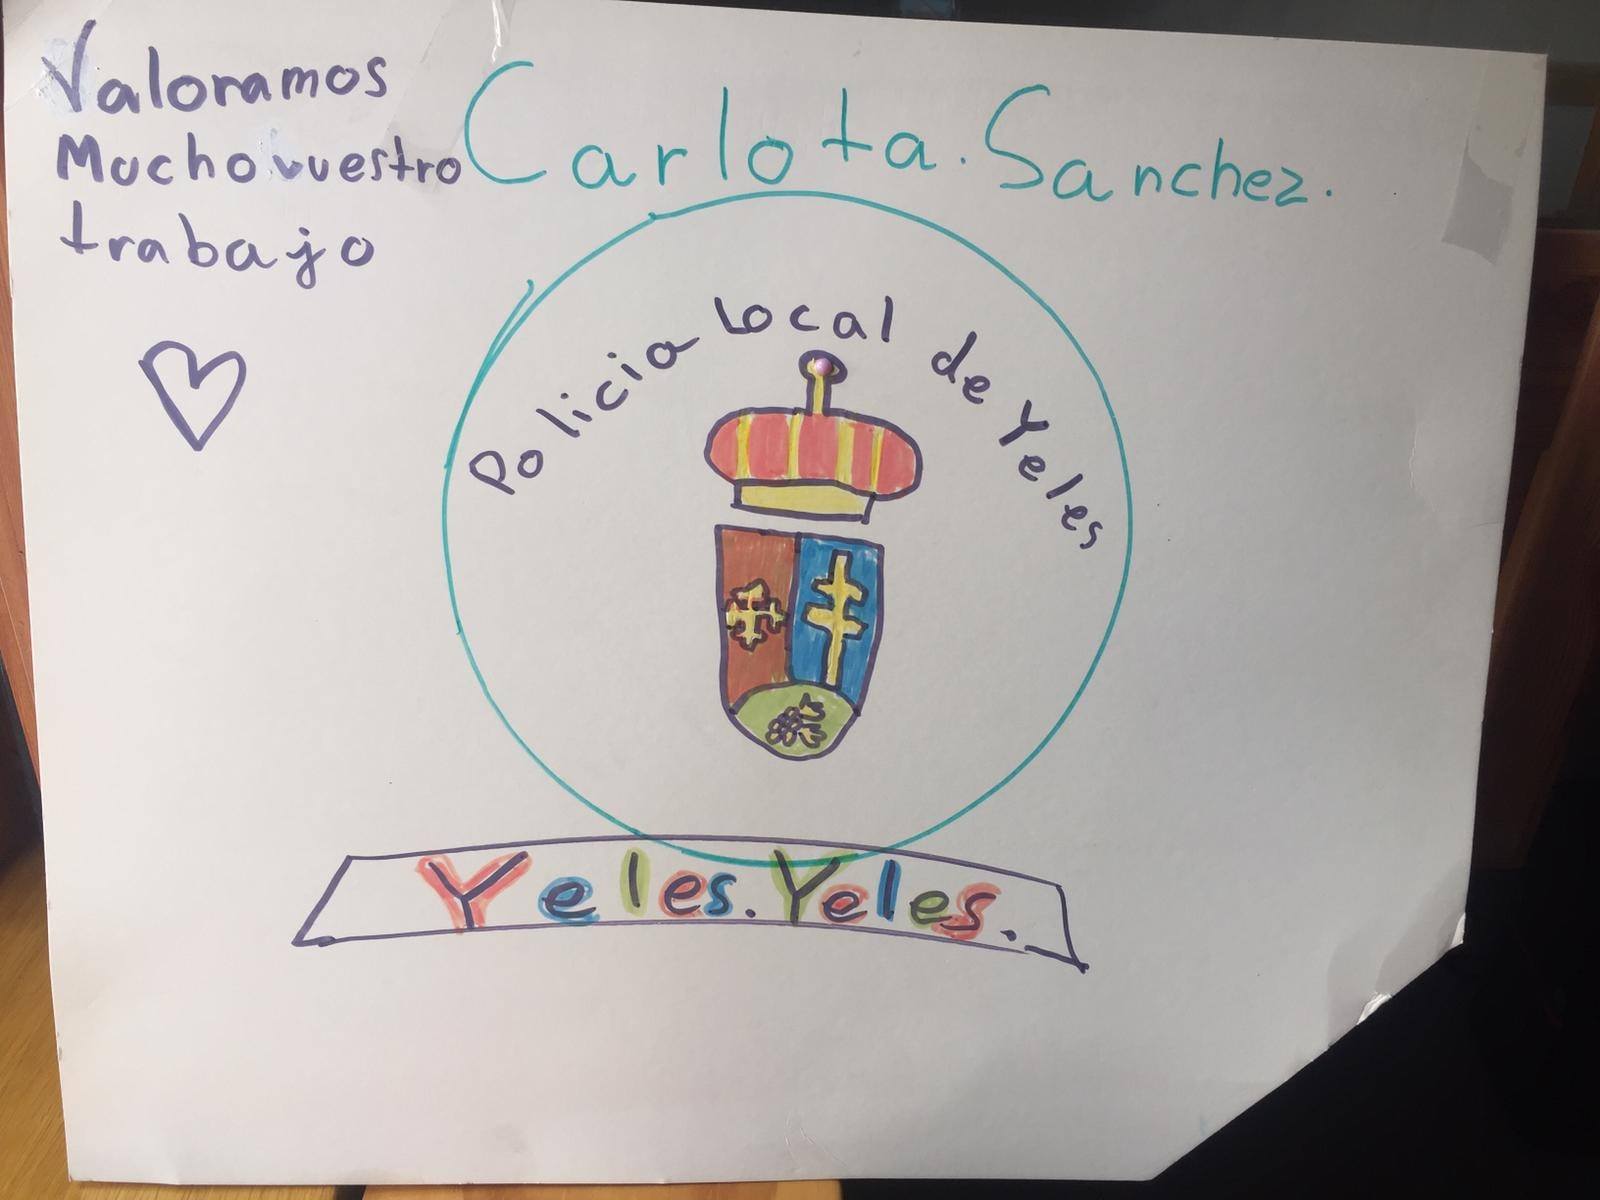 Valoramos
Mucho vuestro
trabajo
Carlota. Sanchez.
Policia Local de Yeles
Yeles. Yeles.